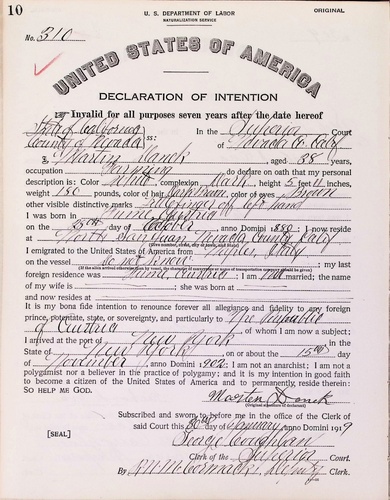 10
U. S. DEPARTMENT OF LABOR
NATURALIZATION SERVICE
ORIGINAL
No. 310
UNITED STATES OF AMERICA
DECLARATION OF INTENTION
Invalid for all purposes seven years after the date hereof
State of California
County of Nevada
ss:
In the Superior Court
of Nevada Co. Calif
I, Martin, aged 38 years,
occupation, do declare on oath that my personal
description is: Color White, complexion Dark, height 5 feet 11 inches,
weight 180 pounds, color of hair, color of eyes Brown
other visible distinctive marks left hand
I was born in Fiume, Austria
on the 25th day of October, anno Domini 1880; I now reside
at North San Juan, Nevada County, Calif
(Give number, street, city or town, and State)
I emigrated to the United States of America from Naples, Italy
on the vessel do not know; my last
(If the alien arrived otherwise than by vessel, the character of conveyance or name of transportation company should be given)
foreign residence was Fiume, Austria; I am not married; the name
of my wife is; she was born at
and now resides at
It is my bona fide intention to renounce forever all allegiance and fidelity to any foreign
prince, potentate, state, or sovereignty, and particularly to The Republic
of Austria, of whom I am now a subject;
I arrived at the port of New York, in the
State of New York, on or about the 15th day
of November, anno Domini 1902; I am not an anarchist; I am not a
polygamist nor a believer in the practice of polygamy; and it is my intention in good faith
to become a citizen of the United States of America and to permanently reside therein:
SO HELP ME GOD.
Martin
(Original signature of declarant)
Subscribed and sworn to before me in the office of the Clerk of
said Court this 30th day of January, anno Domini 1919
[SEAL]
George Coughlan
Clerk of the Superior Court.
By R. N. McCormack, Deputy Clerk.